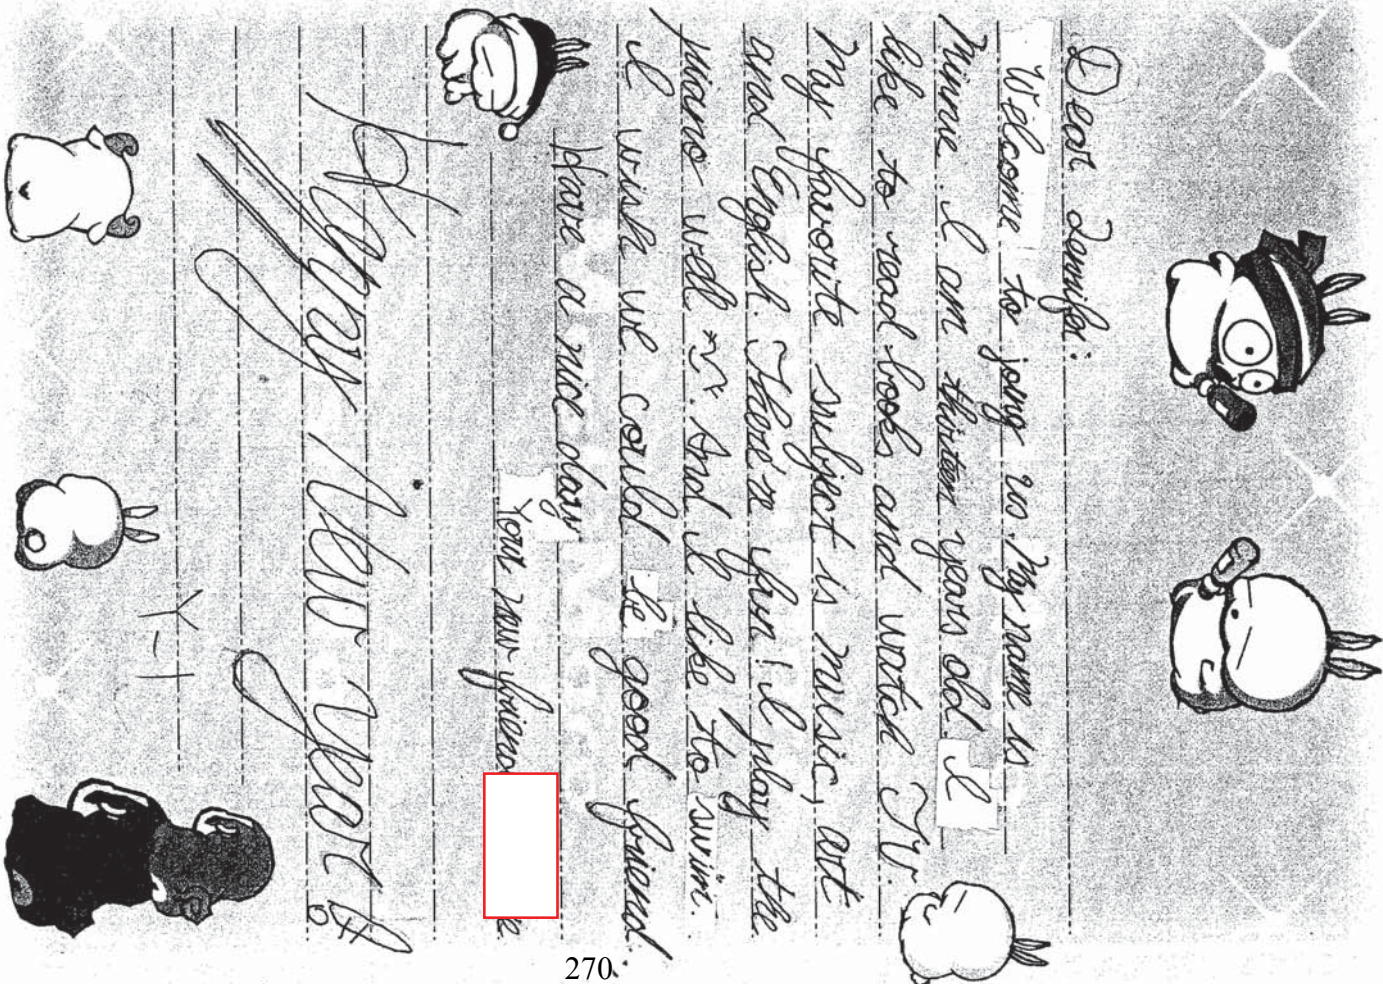 Dear Jennifer:
Welcome to joing us. My name is
Minnie. I am thirteen years old. I
like to read books and watch TV.
My favorite subject is music, art
and English. There's fun! I play the
piano well ~. And I like to swim.
I wish we could be good friend.
Have a nice day
Your new friend
Happy New Year!
Y-1
270